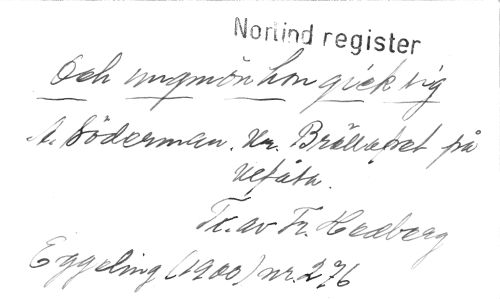 Norlind register
Och ungmön hon gick sig
A. Söderman. Ur. Bröllopet på
Ulfåsa.
Tx. av Fr. Hedberg
Eggeling (1900) nr. 276